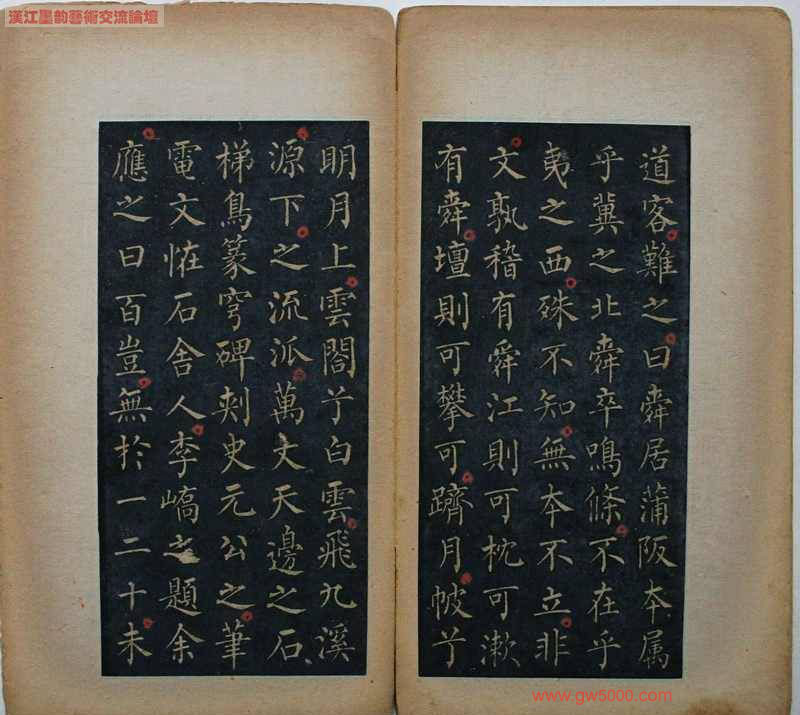 漢江墨韵藝術交流論壇
道客難之曰舜居蒲阪本属
乎冀之北舜卒鳴條不在乎
夷之西殊不知無本不立非
文孰稽有舜江則可枕可漱
有舜壇則可攀可躋月帔兮
明月上雲閣兮白雲飛九溪
源下之流派萬丈天邊之石
梯鳥篆穹碑刾史元公之筆
電文恠石舍人李嶠之題余
應之曰百豈無於一二十未
www.gw5000.com